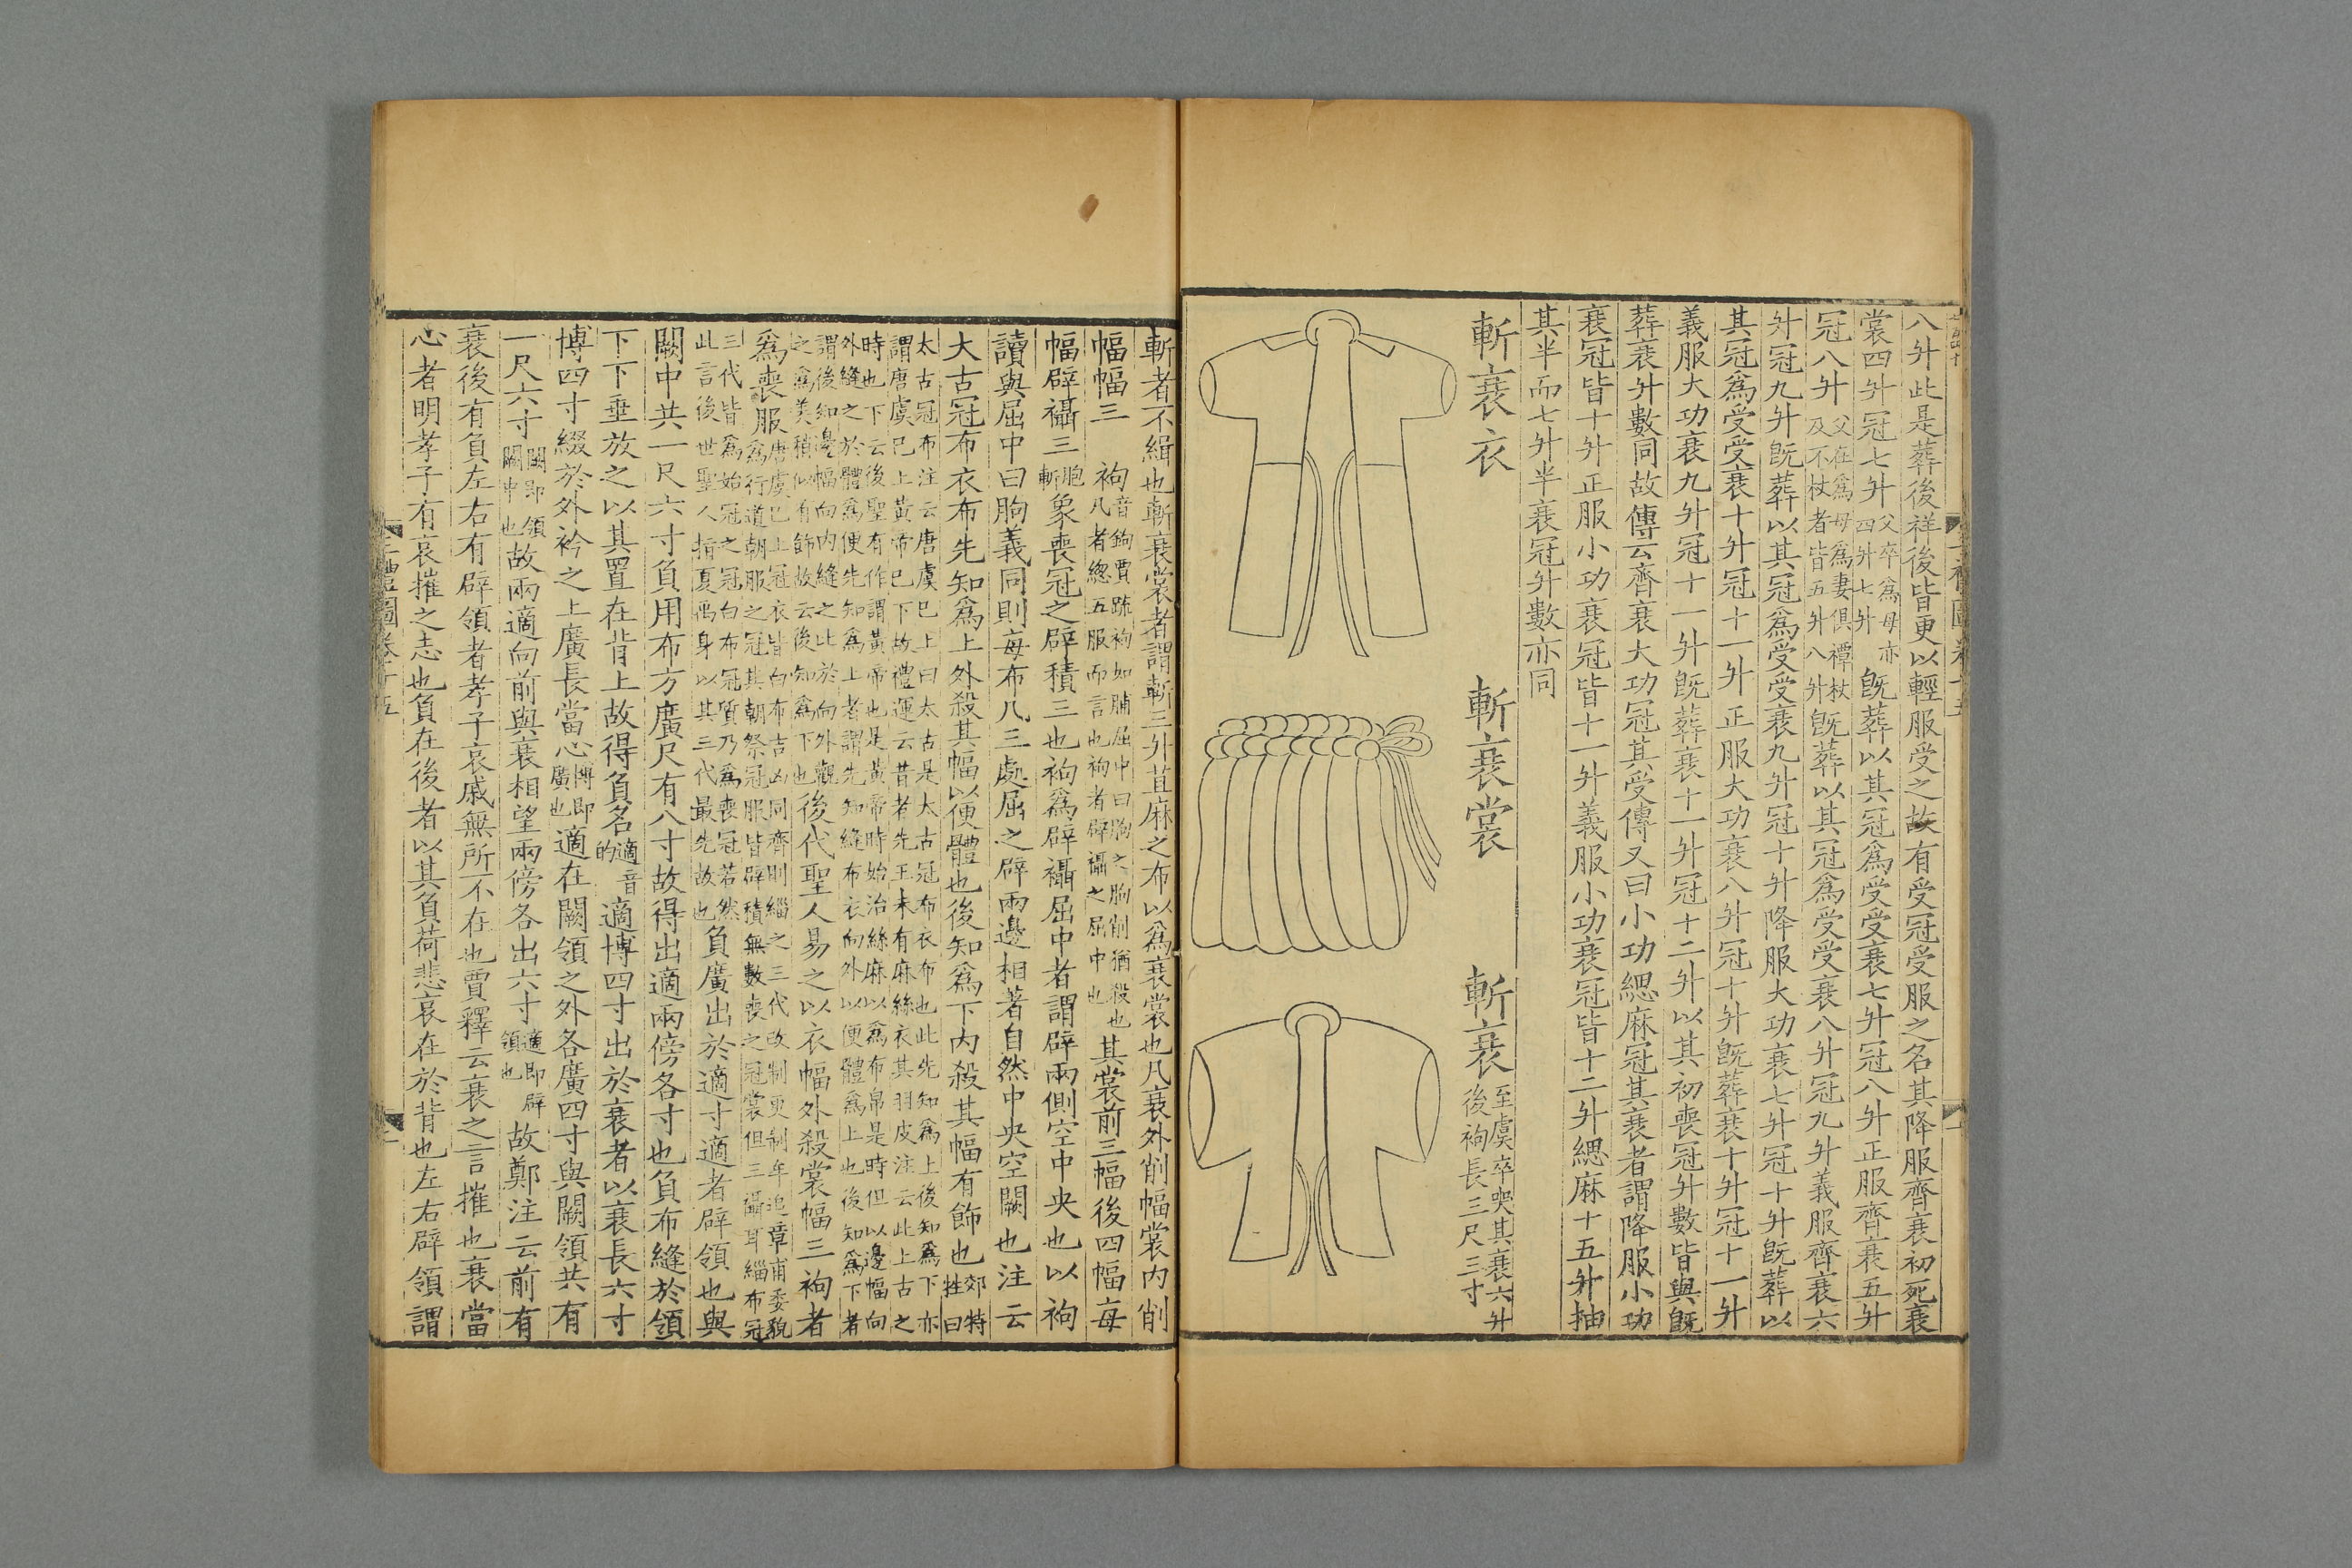 八升此是葬後祥後皆更以輕服受之故有受冠受服之名其降服齊衰初死衰
裳四升冠七升父卒爲母亦四升七升既葬以其冠爲受受衰七升冠八升正服齊衰五升
冠八升父在爲母爲妻俱禫杖及不杖者皆五升八升既葬以其冠爲受受衰八升冠九升義服齊衰六
升冠九升既葬以其冠爲受受衰九升冠十升降服大功衰七升冠十升既葬以
其冠爲受受衰十升冠十一升正服大功衰八升冠十升既葬衰十升冠十一升
義服大功衰九升冠十一升既葬衰十一升冠十二升以其初喪冠升數皆與既
葬衰升數同故傳云齊衰大功冠其受傳又曰小功緦麻冠其衰者謂降服小功
衰冠皆十升正服小功衰冠皆十一升義服小功衰冠皆十二升緦麻十五升抽
其半而七升半衰冠升數亦同
斬衰衣
斬衰裳
斬衰至虞卒哭其衰六升後袧長三尺三寸
斬者不緝也斬衰裳者謂斬三升苴麻之布以爲衰裳也凡衰外削幅裳内削
幅幅三袧音鉤賈疏袧如脯屈中曰朐之朐削猶殺也凡者總五服而言也袧者辟攝之屈中也其裳前三幅後四幅每
幅辟襵三胞斬象喪冠之辟積三也袧爲辟襵屈中者謂辟兩側空中央也以袧
讀與屈中曰朐義同則每布凡三處屈之辟兩邊相著自然中央空闕也注云
大古冠布衣布先知爲上外殺其幅以便體也後知爲下内殺其幅有飾也郊特牲曰
太古冠布注云唐虞已上曰太古是太古冠布衣布也此先知爲上後知爲下亦
謂唐虞已上黃帝已下故禮運云昔者先王未有麻絲衣其羽皮注云此上古之
時也下云後聖有作謂黃帝也是黃帝時始治絲麻以爲布帛是時但以邊幅向
外縫之於體爲便先知爲上者謂先知縫布衣向外以便體爲上也後知爲下者
謂後知邊幅向内縫之比於向外觀
之爲美稍似有飾故云後知爲下也後代聖人易之以衣幅外殺裳幅三袧者
爲喪服唐虞已上冠衣皆白布吉凶同齊則緇之三代改制更制牟追章甫委貌爲行道朝服之冠其朝祭冠服皆辟積無數喪之冠裳但三襵耳緇布冠
三代皆爲始冠之冠白布冠質乃爲喪冠若然此言後世聖人指夏禹身以其三代最先故也負廣出於適寸適者辟領也與
闕中共一尺六寸負用布方廣尺有八寸故得出適兩傍各寸也負布縫於領
下下垂放之以其置在背上故得負名適音的適博四寸出於衰者以衰長六寸
博四寸綴於外衿之上廣長當心博即廣也適在闕領之外各廣四寸與闕領共有
一尺六寸闕即領闕中也故兩適向前與衰相望兩傍各出六寸適即辟領也故鄭注云前有
衰後有負左右有辟領者孝子哀戚無所不在也賈釋云衰之言摧也衰當
心者明孝子有哀摧之志也負在後者以其負荷悲哀在於背也左右辟領謂